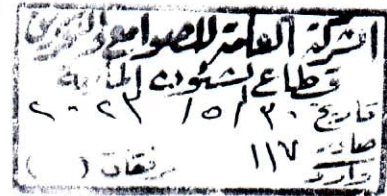 الشركة العامة للصوامع والتخزين
قطاع الشئون المالية
تاريخ ٣٠ / ٥ / ٢٠٢٣
صادر ١١٧ مرفقات ( )
وارد